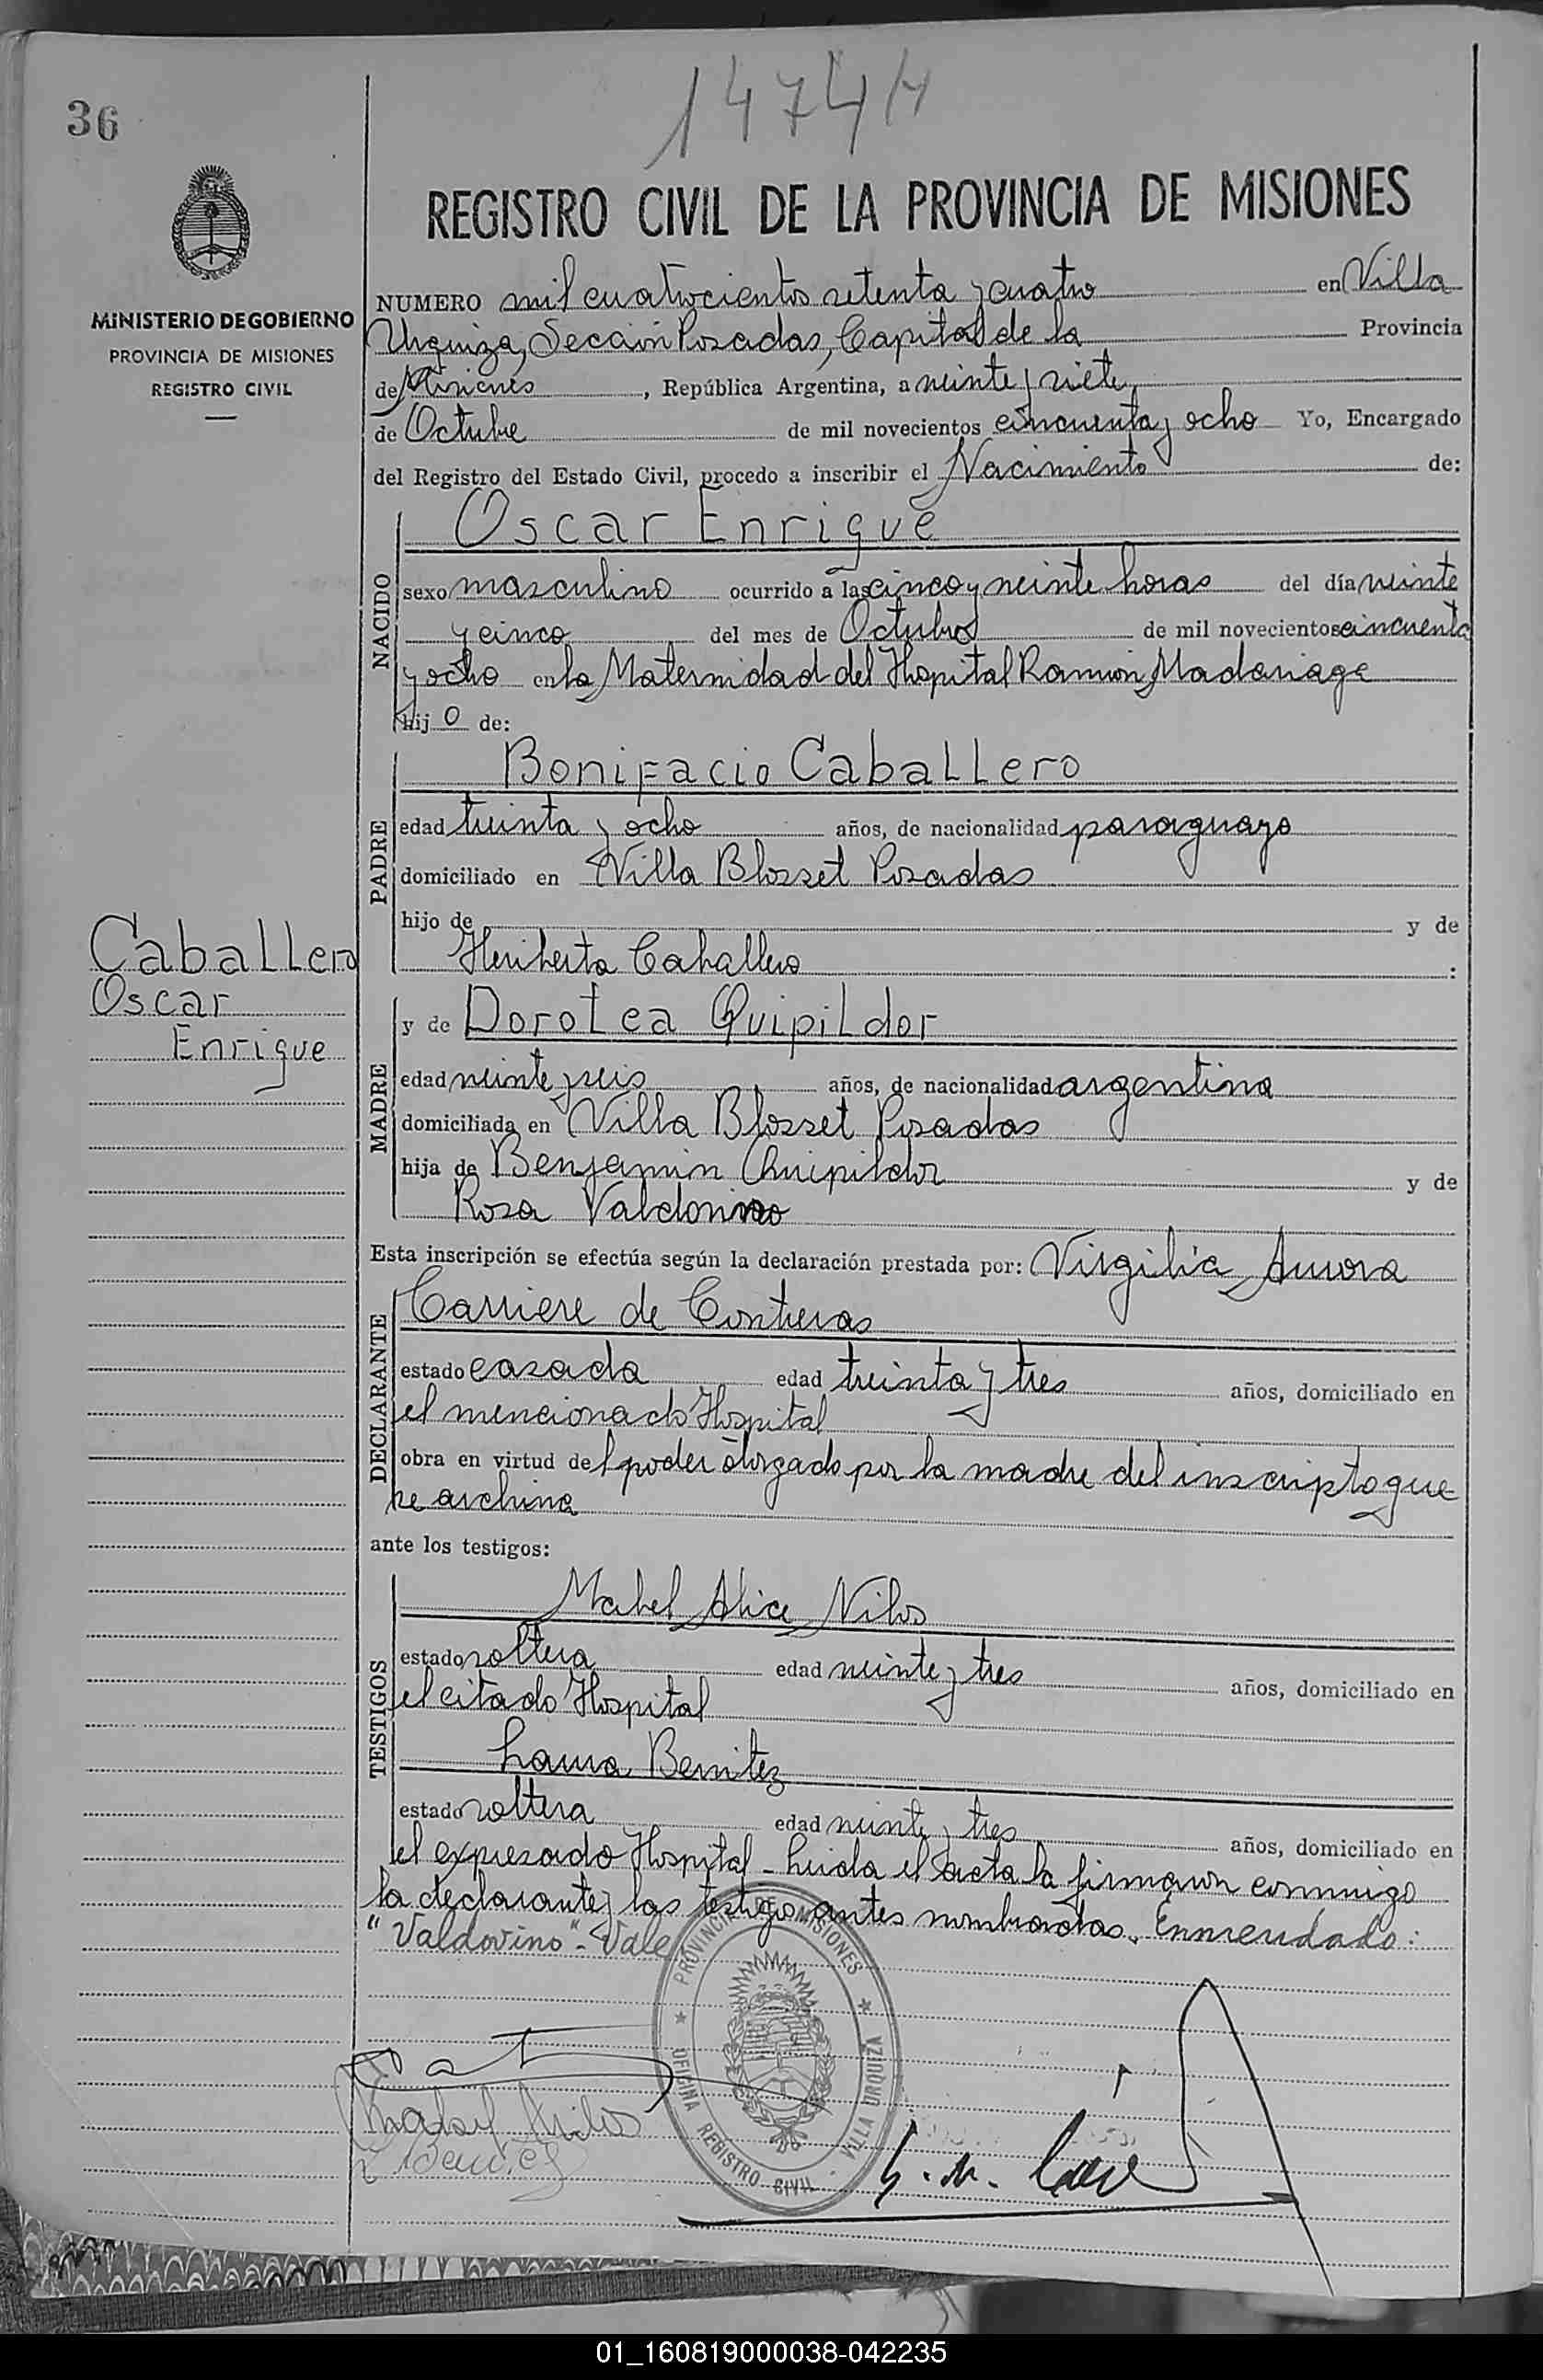 36
1474H
MINISTERIO DE GOBIERNO
PROVINCIA DE MISIONES
REGISTRO CIVIL
REGISTRO CIVIL DE LA PROVINCIA DE MISIONES
NUMERO mil cuatrocientos setenta y cuatro en Villa
Urquiza, Sección Posadas, Capital de la Provincia
de Misiones, República Argentina, a veinte y siete
de Octubre de mil novecientos cincuenta y ocho Yo, Encargado
del Registro del Estado Civil, procedo a inscribir el Nacimiento de:
NACIDO
Oscar Enrique
sexo masculino ocurrido a las cinco y veinte horas del día veinte
y cinco del mes de Octubre de mil novecientos cincuenta
y ocho en la Maternidad del Hospital Ramón Madariaga
hijo de:
PADRE
Bonifacio Caballero
edad treinta y ocho años, de nacionalidad paraguayo
domiciliado en Villa Blosset Posadas
hijo de y de
Heriberta Caballero :
Caballero
Oscar
Enrique
MADRE
y de Dorotea Quipildor
edad veinte y seis años, de nacionalidad argentina
domiciliada en Villa Blosset Posadas
hija de Benjamin Quipildor y de
Rosa Valdovino
Esta inscripción se efectúa según la declaración prestada por: Virgilia Aurora
DECLARANTE
Carriere de Contreras
estado casada edad treinta y tres años, domiciliado en
el mencionado Hospital
obra en virtud del poder otorgado por la madre del inscripto que
se archiva
ante los testigos:
TESTIGOS
Mabel Alice Nilos
estado soltera edad veinte y tres años, domiciliado en
el citado Hospital
Laura Benitez
estado soltera edad veinte y tres años, domiciliado en
el expresado Hospital - Leida el acta la firmaron conmigo
la declarante y las testigos antes nombradas. Enmendado:
"Valdovino" - Vale
PROVINCIA DE MISIONES
OFICINA REGISTRO CIVIL - VILLA URQUIZA
01_160819000038-042235